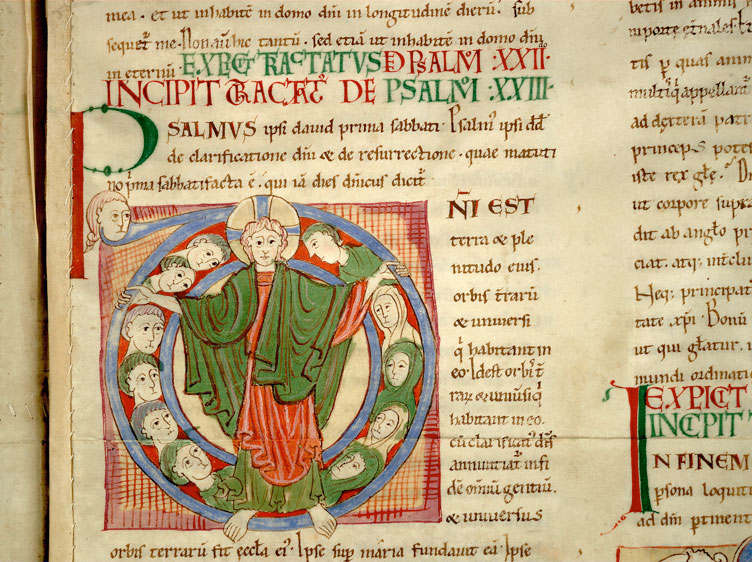 mea · et ut inhabitē in domo dn̄i in longitudinē dierū · sub
me · Non aut̄ hic tantū · sed etiā ut inhabitē in domo dn̄i
in eternū TRACTATVS PSALM̄ :XXII·
INCIPIT DE PSALM̄ :XXIII·
PSALMVS ipsi dauid prima sabbati · Psalm ipsi dd̄
de clarificatione dn̄i & de resurrectione · quae matuti
no sabbati facta ē · qui iā dies dn̄icus dicit̄
DN̄I EST
terra & ple
nitudo eius ·
orbis t̄rarū
& uniuersi
q̄ habitant in
eo · Idest orbis t̄
rarū & uniusiq̄
habitant in eo ·
annuntiat̄ in fi
de omiū gentiū ·
& uniuersus
orbis terrarū fit eccl̄a ei · Ipse sup maria fundauit eā · Ipse
betis in animi
tis p quas anim
multiq̄ appellant
ad dexterā patr
princeps potes
iste rex glē · D
ut corpore supra
dit ab anglo pri
ciat · atq · int̄clu
Heq principat
tate xp̄i · Bonū
ut qui glatur ·
mundi ordinati
EXPLICT
INCIPIT
IN FINEM
psona loquit
ad dn̄m ptinent